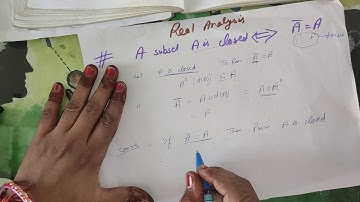 Real Analysis
# A subset A is closed ⇔ Ā = A
Let A is closed To Prove Ā = A
A' (d(A)) ⊆ A
Ā = A ∪ d(A) = A ∪ A'
= A
If Ā = A Then Prove A is closed
=